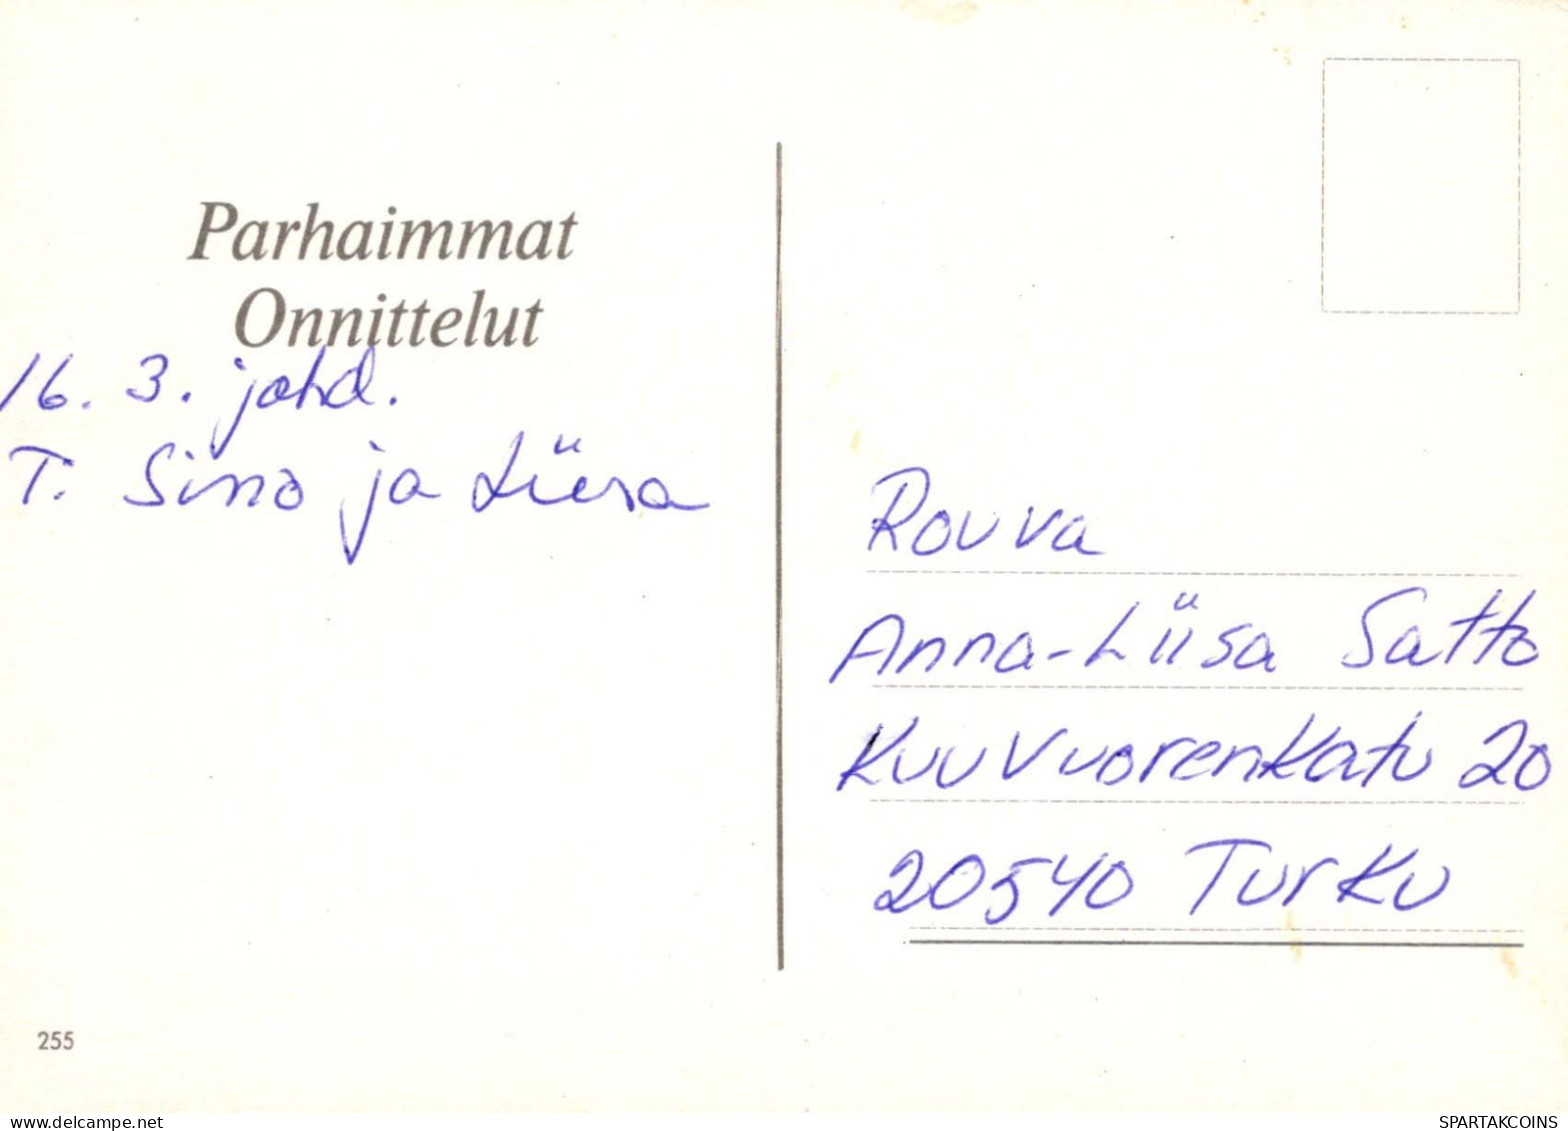 Parhaimmat
Onnittelut
16. 3. johd.
T. Simo ja Liisa
Rouva
Anna-Liisa Satto
Kuuvuorenkatu 20
20540 Turku
255
delcampe.net
SPARTAKCOINS